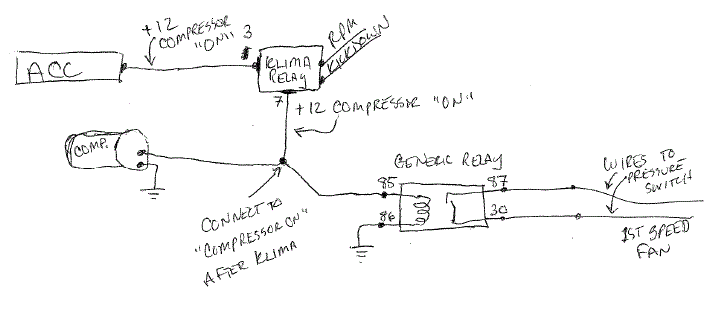 +12
COMPRESSOR
"ON"
3
RPM
KICKDOWN
ACC
KLIMA
RELAY
7
+12 COMPRESSOR "ON"
COMP.
GENERIC RELAY
85
87
86
30
WIRES TO
PRESSURE
SWITCH
1ST SPEED
FAN
CONNECT TO
"COMPRESSOR ON"
AFTER KLIMA